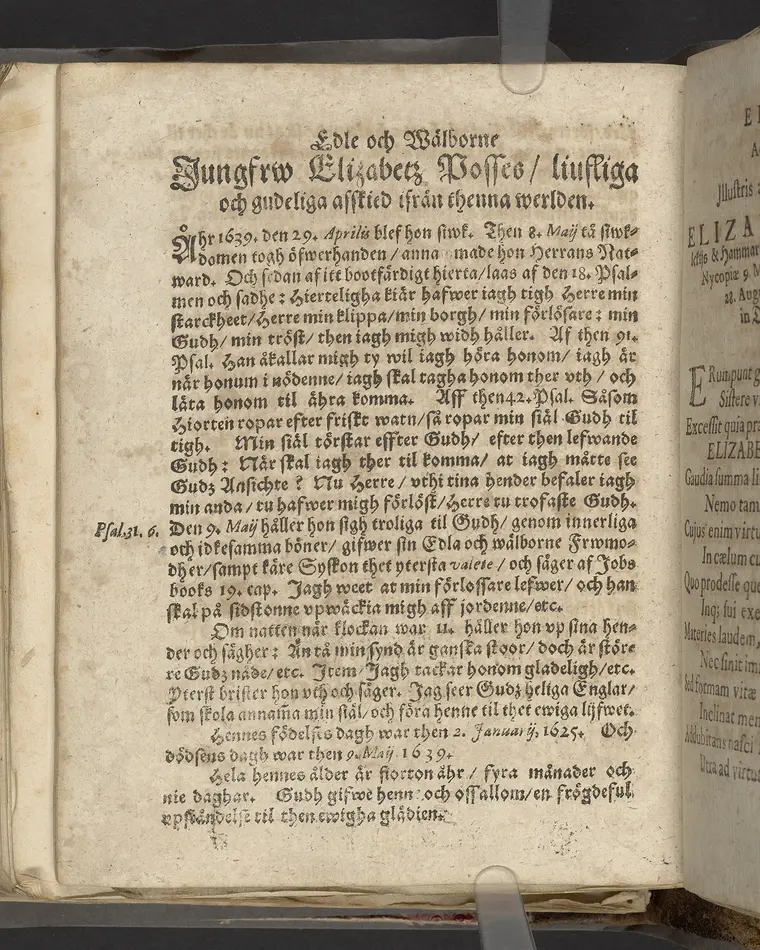 Edle och Wälborne
Jungfrw Elizabetz Posses/ liufliga
och gudeliga afskied ifrån thenna werlden.
Åhr 1639. den 29. Aprilis blef hon siwk. Then 8. Maij tå siwk-
domen togh öfwerhanden/ anna made hon Herrans Nat-
ward. Och sedan af itt bootfärdigt hierta/ laas af den 18. Psal-
men och sadhe: Hierteligha kiär hafwer iagh tigh Herre min
starckheet/ Herre min klippa/ min borgh/ min förlösare: min
Gudh/ min tröst/ then iagh migh widh håller. Af then 91.
Psal. Han åkallar migh ty wil iagh höra honom/ iagh är
när honum i nödenne/ iagh skal tagha honom ther vth/ och
läta honom til ähra komma. Aff then 42. Psal. Såsom
Hiorten ropar efter friskt watn/ så ropar min siäl Gudh til
tigh. Min siäl törstar effter Gudh/ efter then lefwande
Gudh: När skal iagh ther til komma/ at iagh måtte see
Gudz Ansichte? Nu Herre/ vthi tina hender befaler iagh
min anda/ tu hafwer migh förlöst/ Herre tu trofaste Gudh.
Psal. 31. 6.
Den 9. Maij håller hon sigh troliga til Gudh/ genom innerliga
och idkesamma böner/ gifwer sin Edla och wälborne Frwmo-
dher/ sampt käre Syskon thet ytersta valete/ och säger af Jobs
books 19. cap. Jagh weet at min förlossare lefwer/ och han
skal på sidstonne vpwäckia migh aff jordenne/ etc.
Om natten när klockan war 11. håller hon vp sina hen-
der och sägher: Än tå min synd är ganska stoor/ doch är störe-
re Gudz näde/ etc. Item/ Jagh tackar honom gladeligh/ etc.
Yterst brister hon vth och säger. Jag seer Gudz heliga Englar/
som skola annam̃a min siäl/ och föra henne til thet ewiga lijfwet.
Hennes födelsis dagh war then 2. Januarij, 1625. Och
dödsens dagh war then 9. Maij 1639.
Hela hennes ålder är fiorton åhr/ fyra månader och
nie daghar. Gudh gifwe henne och oss allom/ en frögdeful
vpståndelse til then ewigha glädien.